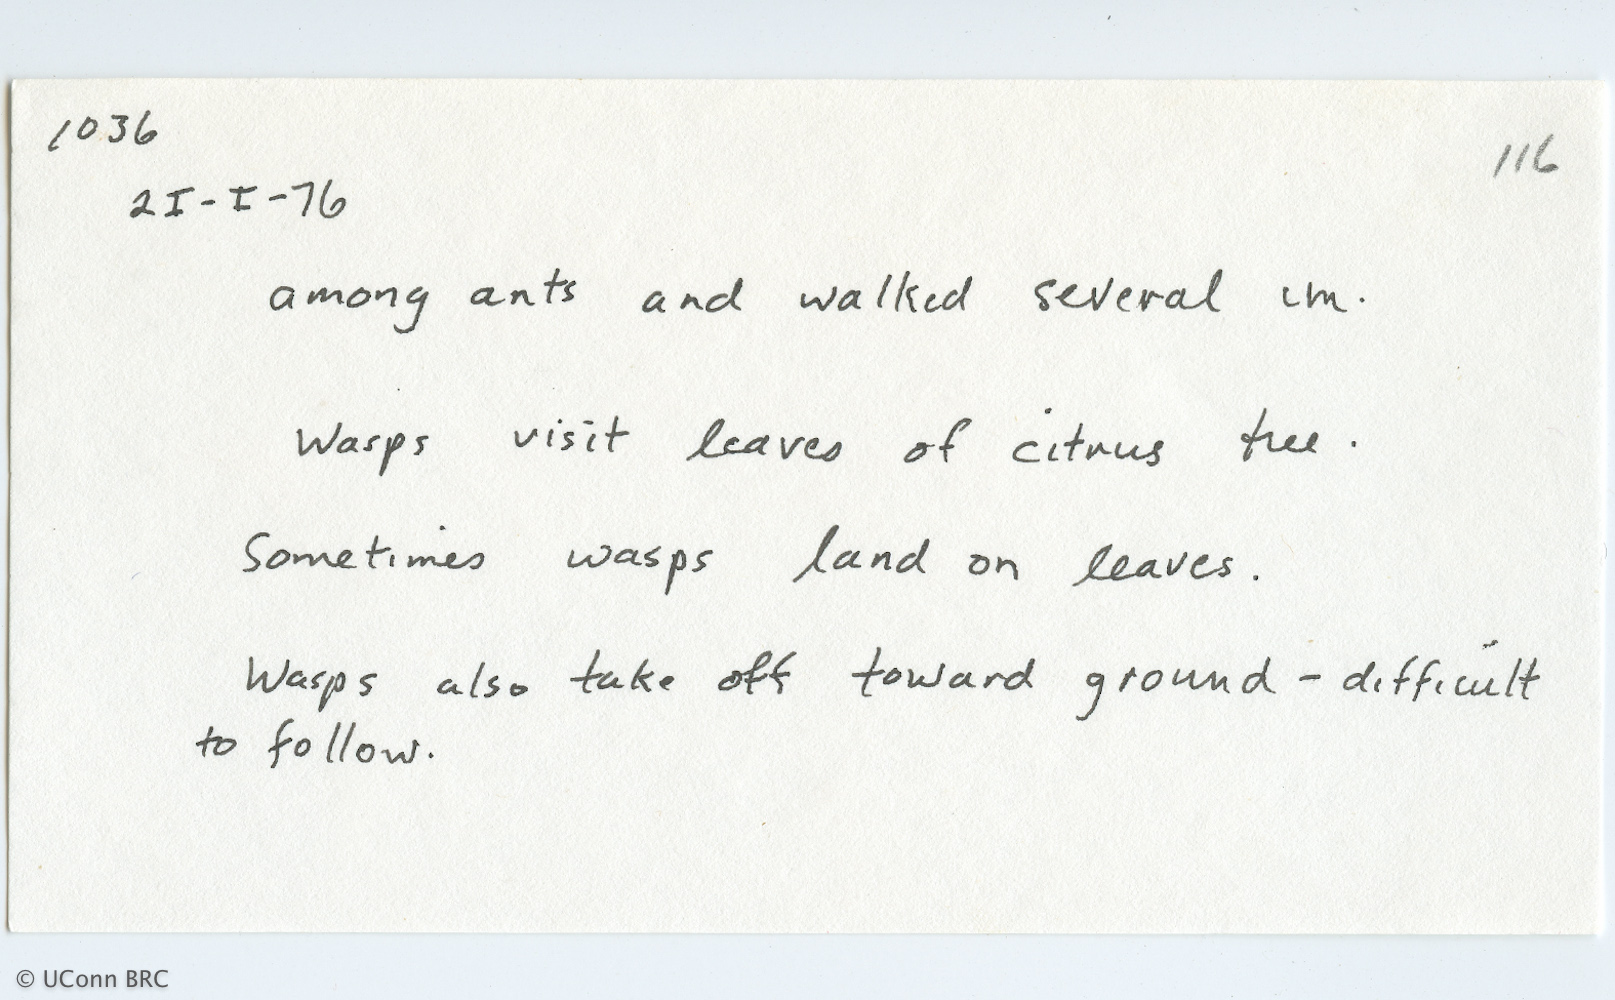 1036
116
21-I-76
among ants and walked several cm.
Wasps visit leaves of citrus tree.
Sometimes wasps land on leaves.
Wasps also take off toward ground - difficult
to follow.
© UConn BRC